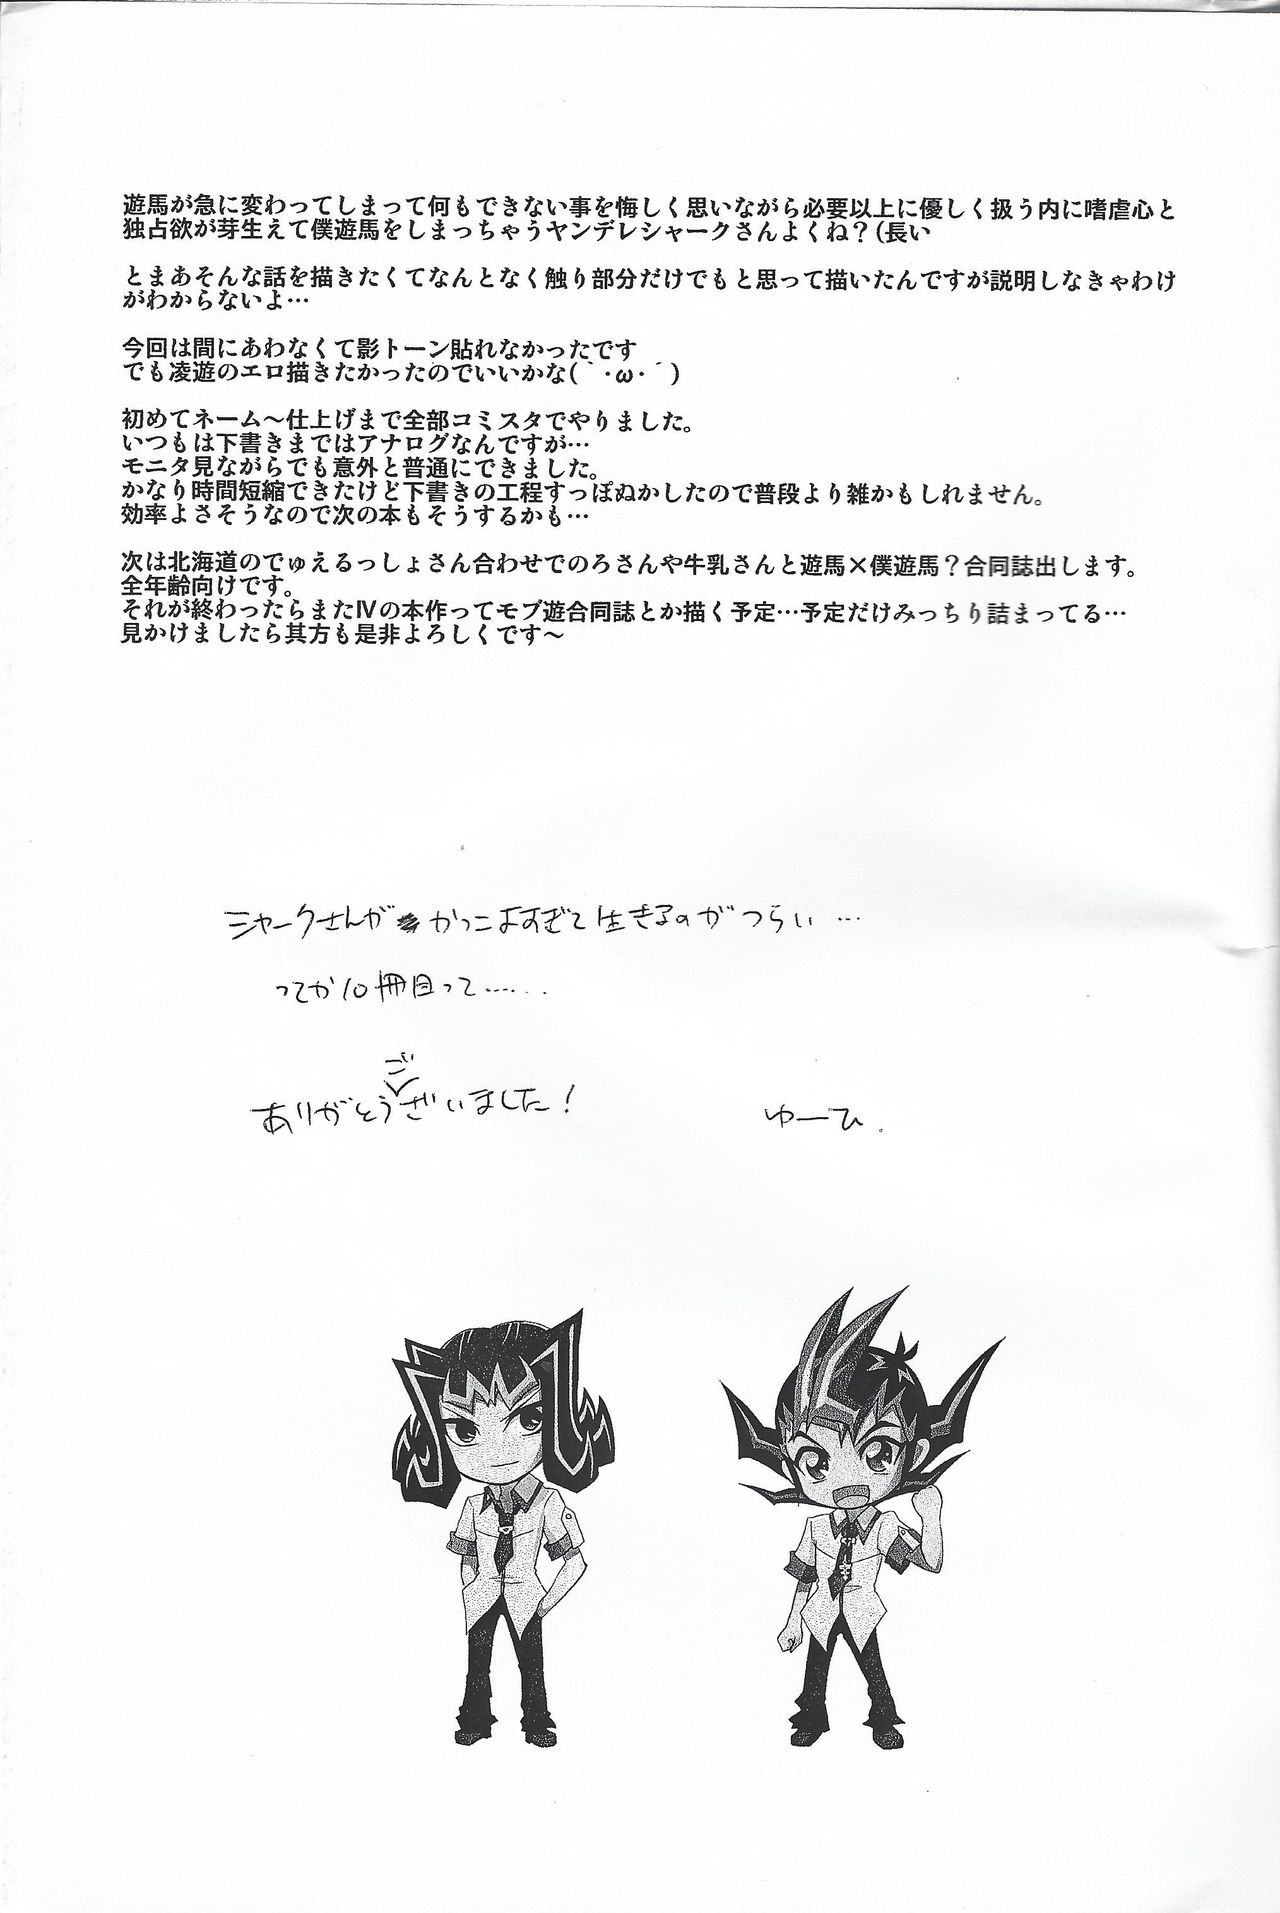 遊馬が急に変わってしまって何もできない事を悔しく思いながら必要以上に優しく扱う内に嗜虐心と
独占欲が芽生えて僕遊馬をしまっちゃうヤンデレシャークさんよくね？(長い
とまあそんな話を描きたくてなんとなく触り部分だけでもと思って描いたんですが説明しなきゃわけ
がわからないよ…
今回は間にあわなくて影トーン貼れなかったです
でも凌遊のエロ描きたかったのでいいかな(｀・ω・´)
初めてネーム～仕上げまで全部コミスタでやりました。
いつもは下書きまではアナログなんですが…
モニタ見ながらでも意外と普通にできました。
かなり時間短縮できたけど下書きの工程すっぽぬかしたので普段より雑かもしれません。
効率よさそうなので次の本もそうするかも…
次は北海道のでゅえるっしょさん合わせでのろさんや牛乳さんと遊馬×僕遊馬？合同誌出します。
全年齢向けです。
それが終わったらまたⅣの本作ってモブ遊合同誌とか描く予定…予定だけみっちり詰まってる…
見かけましたら其方も是非よろしくです～
シャークさんがかっこよすぎて生きるのがつらい…
ってか10冊目って……
ありがとうございました！
ゆーひ.